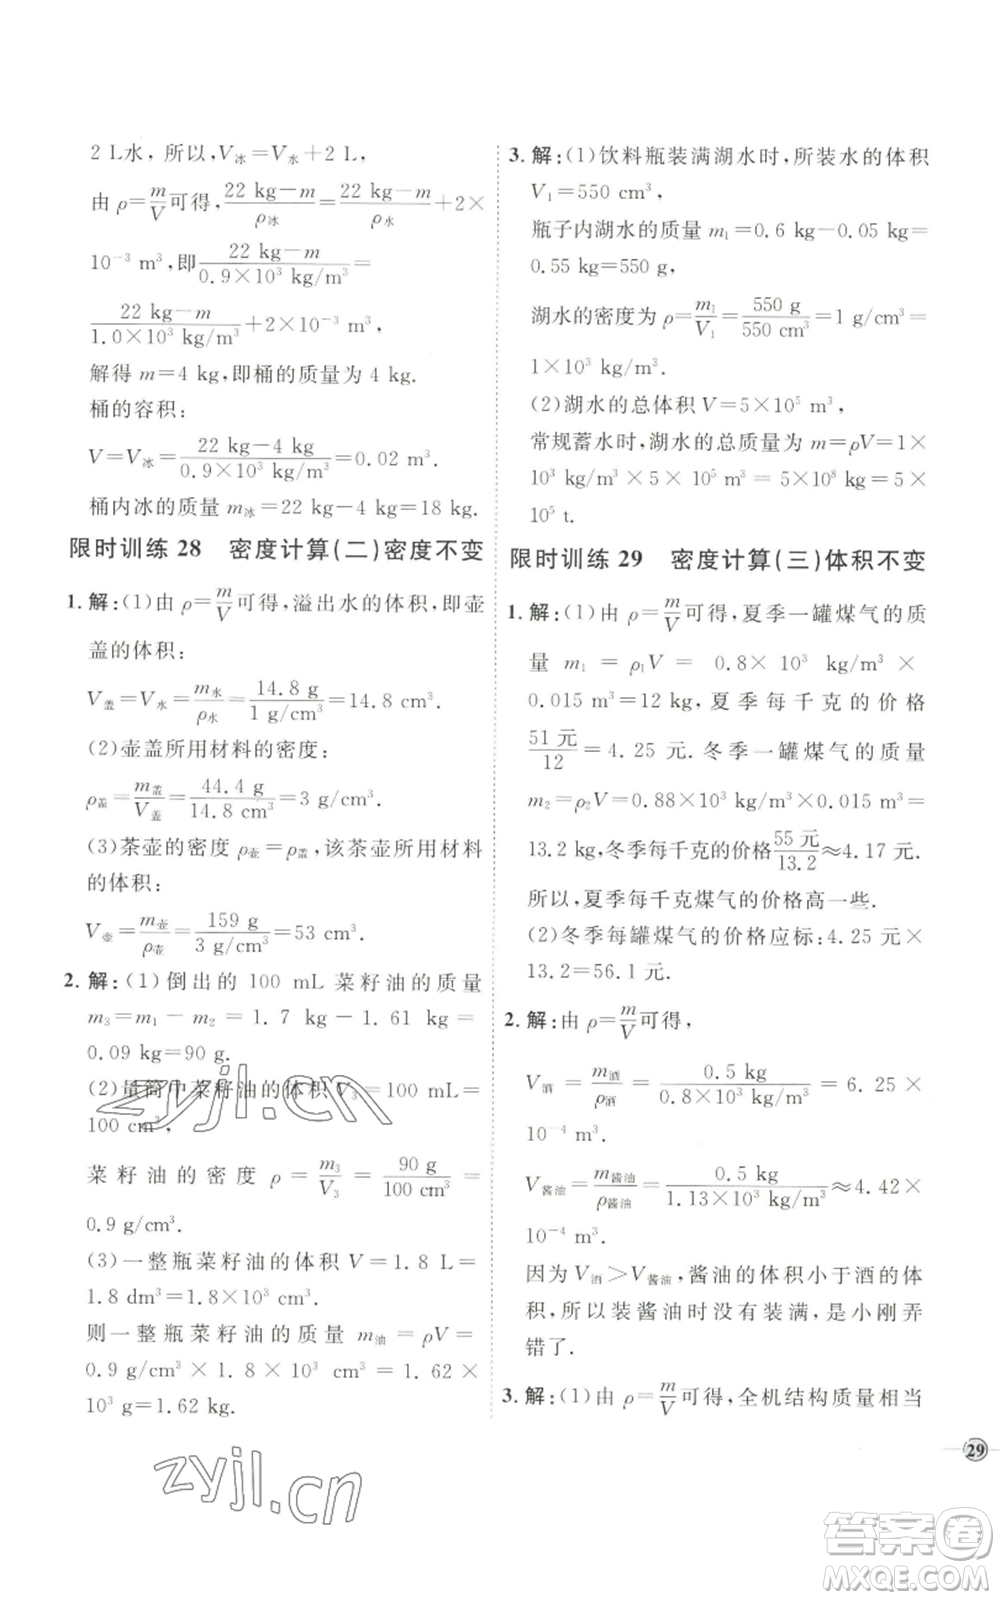 2 L水，所以，V冰=V水+2 L，
由 ρ=m/V可得，(22 kg－m)/ρ冰=(22 kg－m)/ρ水+2×
10⁻³ m³，即(22 kg－m)/(0.9×10³ kg/m³)=
(22 kg－m)/(1.0×10³ kg/m³)+2×10⁻³ m³，
解得 m=4 kg，即桶的质量为 4 kg.
桶的容积：
V=V冰=(22 kg－4 kg)/(0.9×10³ kg/m³)=0.02 m³.
桶内冰的质量 m冰=22 kg－4 kg=18 kg.
限时训练 28 密度计算(二)密度不变
1. 解：(1)由 ρ=m/V可得，溢出水的体积，即壶
盖的体积：
V盖=V水=m水/ρ水=14.8 g/(1 g/cm³)=14.8 cm³.
(2)壶盖所用材料的密度：
ρ盖=m盖/V盖=44.4 g/14.8 cm³=3 g/cm³.
(3)茶壶的密度 ρ壶=ρ盖，该茶壶所用材料
的体积：
V壶=m壶/ρ壶=159 g/(3 g/cm³)=53 cm³.
2. 解：(1)倒出的 100 mL 菜籽油的质量
m₃=m₁－m₂=1.7 kg－1.61 kg=
0.09 kg=90 g.
(2)量筒中菜籽油的体积 V₃=100 mL=
100 cm³，
菜籽油的密度 ρ=m₃/V₃=90 g/100 cm³=
0.9 g/cm³.
(3)一整瓶菜籽油的体积 V=1.8 L=
1.8 dm³=1.8×10³ cm³.
则一整瓶菜籽油的质量 m油=ρV=
0.9 g/cm³×1.8×10³ cm³=1.62×
10³ g=1.62 kg.
3. 解：(1)饮料瓶装满湖水时，所装水的体积
V₁=550 cm³，
瓶子内湖水的质量 m₁=0.6 kg－0.05 kg=
0.55 kg=550 g，
湖水的密度为 ρ=m₁/V₁=550 g/550 cm³=1 g/cm³=
1×10³ kg/m³.
(2)湖水的总体积 V=5×10⁵ m³，
常规蓄水时，湖水的总质量为 m=ρV=1×
10³ kg/m³×5×10⁵ m³=5×10⁸ kg=5×
10⁵ t.
限时训练 29 密度计算(三)体积不变
1. 解：(1)由 ρ=m/V可得，夏季一罐煤气的质
量 m₁=ρ₁V=0.8×10³ kg/m³×
0.015 m³=12 kg，夏季每千克的价格
51 元/12=4.25 元. 冬季一罐煤气的质量
m₂=ρ₂V=0.88×10³ kg/m³×0.015 m³=
13.2 kg，冬季每千克的价格55 元/13.2≈4.17 元.
所以，夏季每千克煤气的价格高一些.
(2)冬季每罐煤气的价格应标：4.25 元×
13.2=56.1 元.
2. 解：由 ρ=m/V可得，
V酒=m酒/ρ酒=0.5 kg/(0.8×10³ kg/m³)=6.25×
10⁻⁴ m³.
V酱油=m酱油/ρ酱油=0.5 kg/(1.13×10³ kg/m³)≈4.42×
10⁻⁴ m³.
因为 V酒>V酱油，酱油的体积小于酒的体
积，所以装酱油时没有装满，是小刚弄
错了.
3. 解：(1)由 ρ=m/V可得，全机结构质量相当
29
zyjl.cn
zyjl.cn
答案卷
MXQE.COM